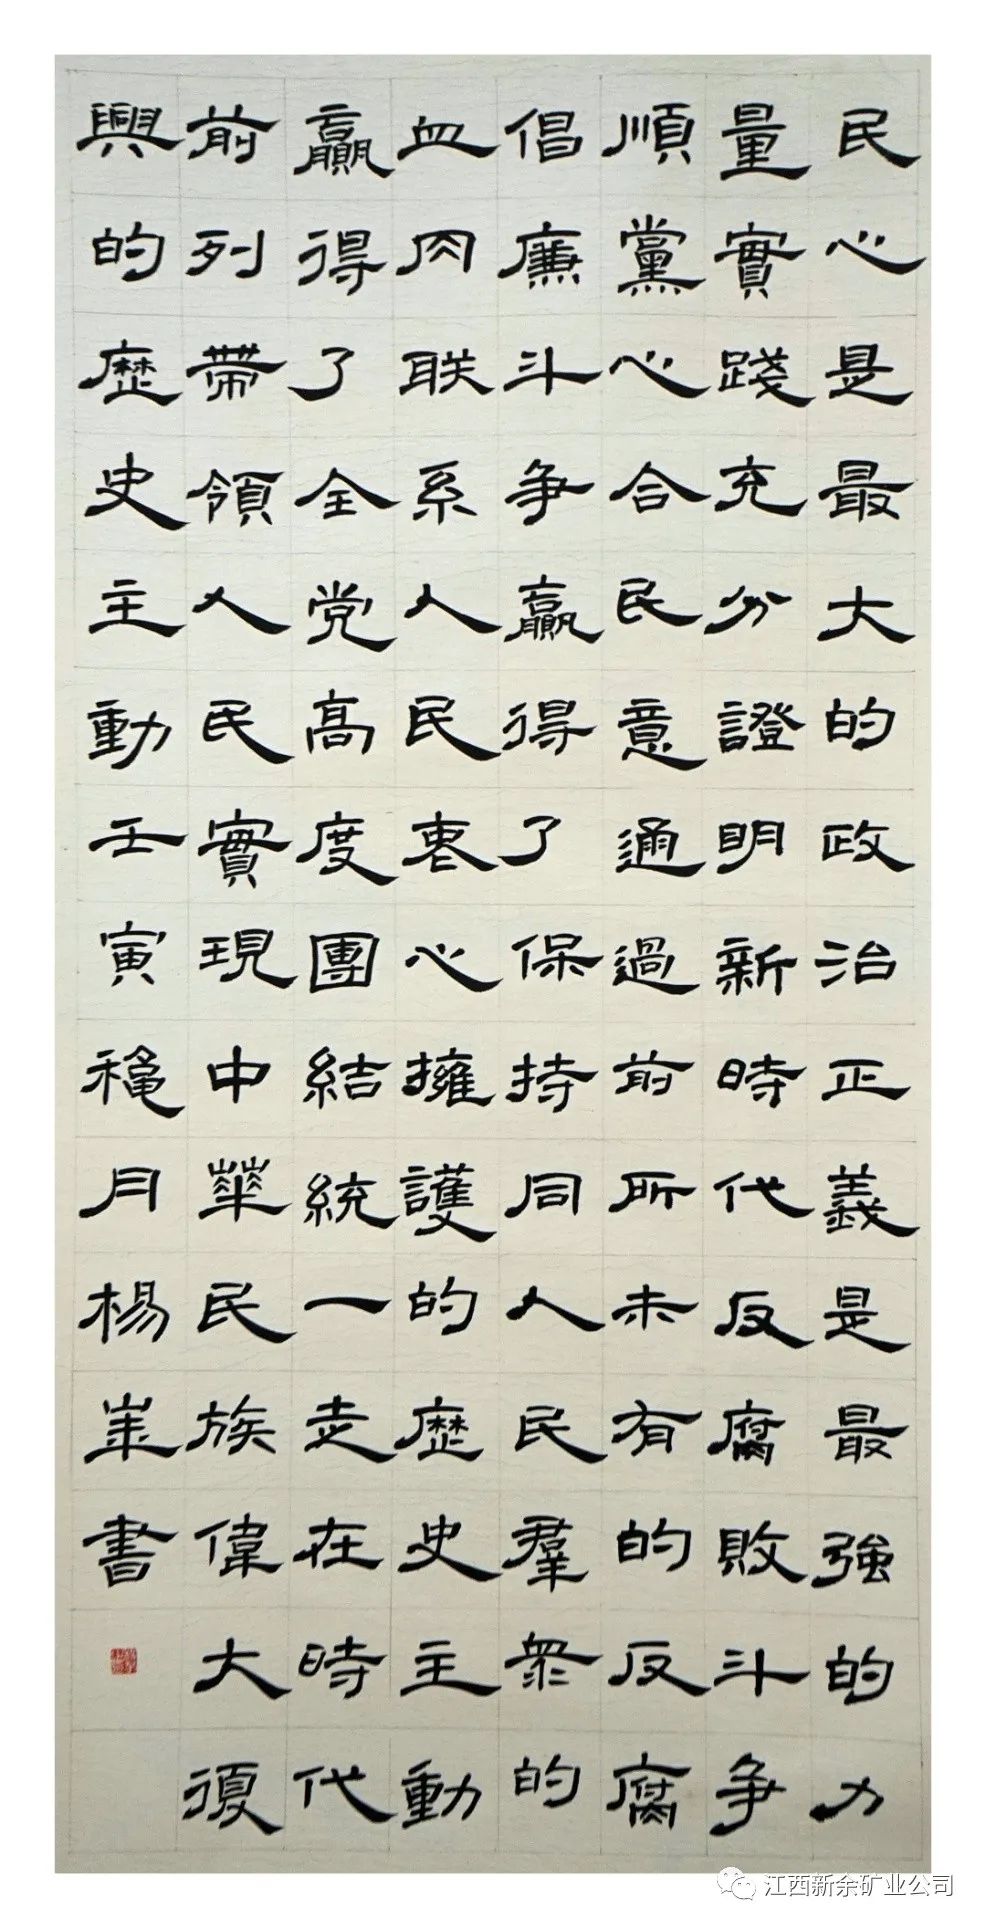 民心是最大的政治正義是最強的力
量實踐充分證明新時代反腐敗斗争
順黨心合民意通過前所未有的反腐
倡廉斗争贏得了保持同人民羣衆的
血肉联系人民衷心擁護的歷史主動
贏得了全党高度團結統一走在時代
前列帶領人民實現中華民族偉大復
興的歷史主動壬寅穐月楊業書
江西新余矿业公司